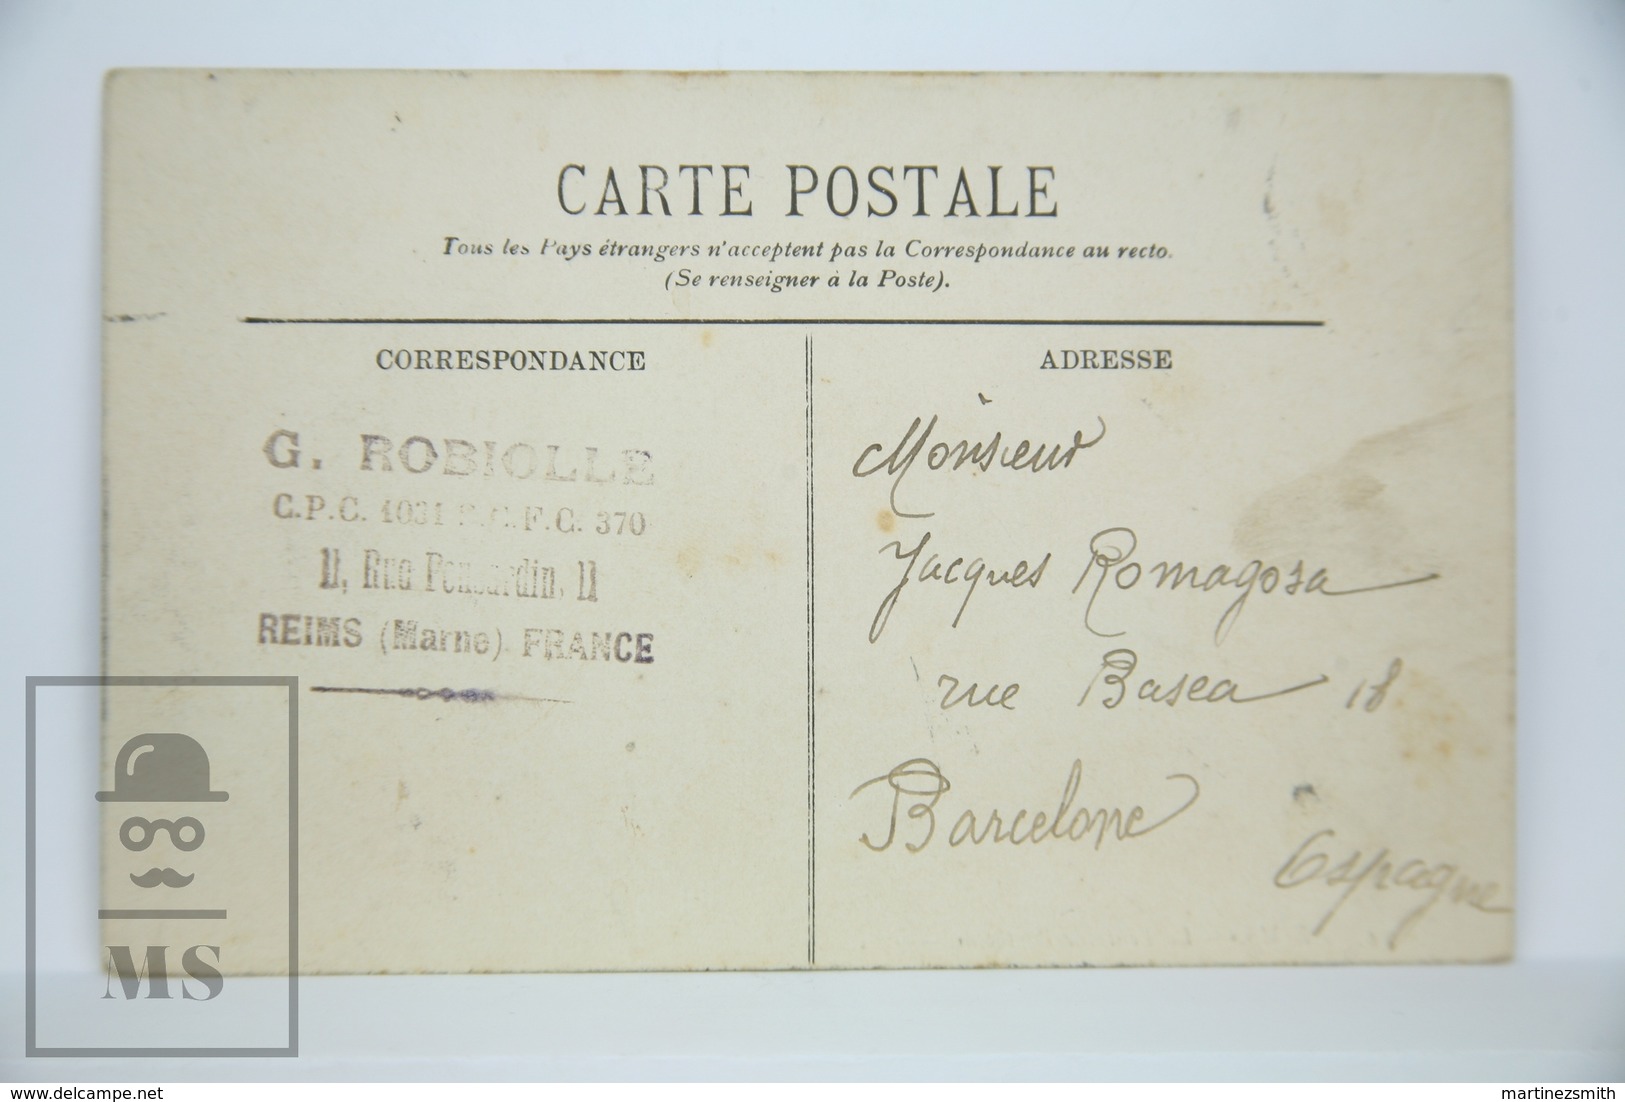 CARTE POSTALE
Tous les Pays étrangers n'acceptent pas la Correspondance au recto.
(Se renseigner à la Poste).
CORRESPONDANCE
G. ROBIOLLE
C.P.C. 1031 F.G. 370
11, Rue Ponsardin, 11
REIMS (Marne) FRANCE
ADRESSE
Monsieur
Jacques Romagosa
rue Basea 18
Barcelone
Espagne
MS
delcampe.net
martinezsmith